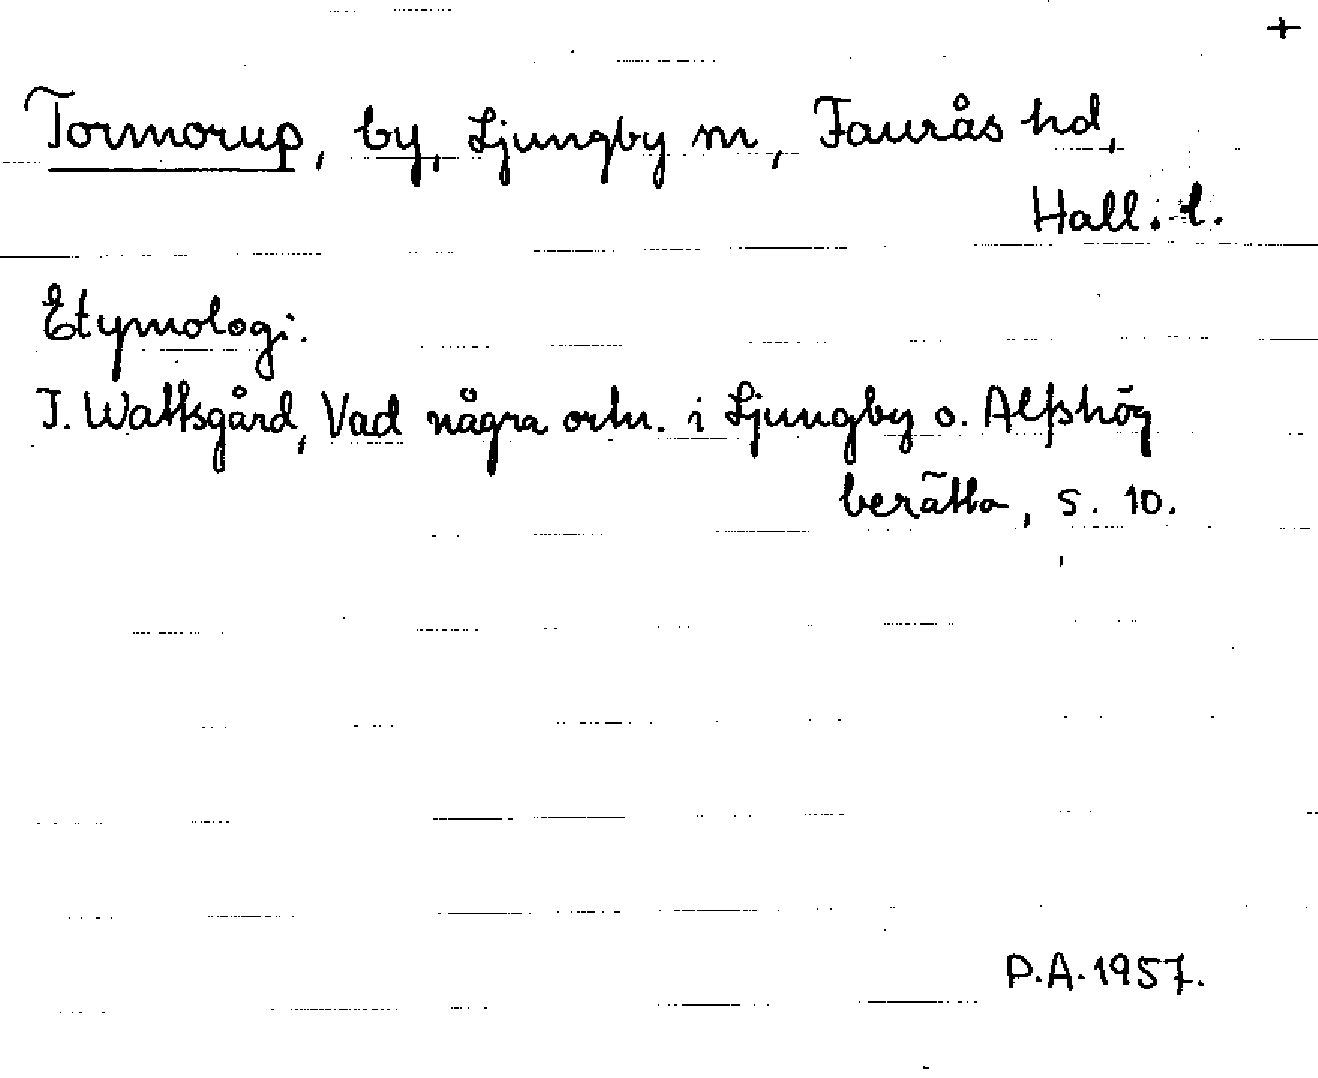 +
Tormorup, by, Ljungby sn, Faurås hd,
Hall. l.
Etymologi.
J. Wattsgård, Vad några ortn. i Ljungby o. Alfshög
berätta, s. 10.
P.A. 1957.